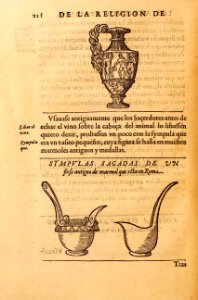 216 DE LA RELIGION DE
Vsauase antiguamente que los Sacerdotes antes de
echar el vino sobre la cabeça del animal lo libassen
quiere dezir, prouassen vn poco con la sympula que
era vn vasito pequeño, cuya figura se halla en muchos
marmoles antiguos y medallas.
Libar el
vino.
Sympula
que.
SYMPVLAS SACADAS DE VN
friso antiguo de marmol que esta en Roma.
Tras